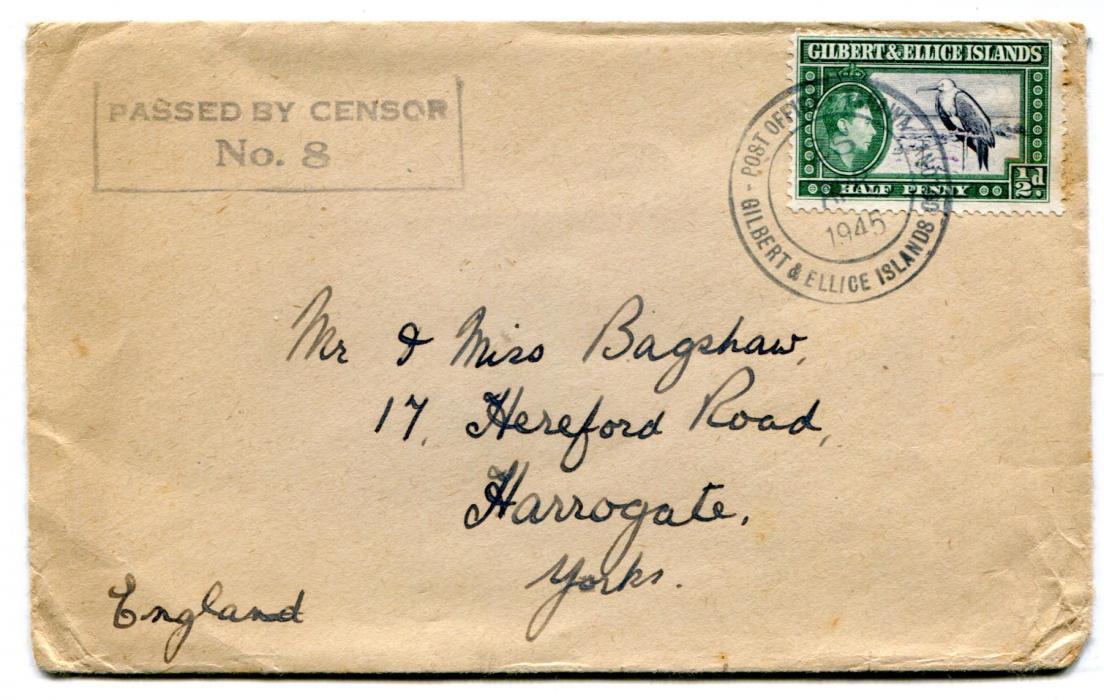 PASSED BY CENSOR
No. 8
GILBERT & ELLICE ISLANDS
HALF PENNY
½d.
POST OFFI
GILBERT & ELLICE ISLANDS
1945
Mr & Miss Bagshaw,
17, Hereford Road,
Harrogate,
Yorks.
England